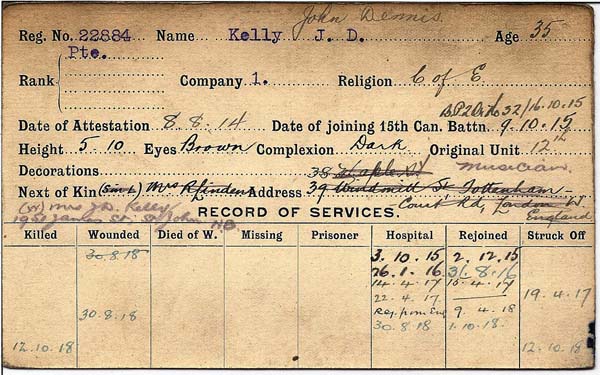 John Dennis.
Reg. No. 22884 Name Kelly J. D. Age 35
Pte.
Rank Company 1. Religion C of E.
32/16.10.15
Date of Attestation 8.8.14 Date of joining 15th Can. Battn. 9.10.15
Height 5 10 Eyes Brown Complexion Dark Original Unit 12th
Decorations 38 Musician.
Next of Kin Mrs Address 39 Windmill St Tottenham
(W) Mrs J.D. Kelly Court Rd, London W.
James St. St John NB England
RECORD OF SERVICES.
Killed Wounded Died of W. Missing Prisoner Hospital Rejoined Struck Off
30.8.18 3.10.15 2.12.15
26.1.16 31.8.16
14.4.17 15.4.17
22.4.17 19.4.17
30.8.18 Rej. from Eng 9.4.18
30.8.18 1.10.18
12.10.18 12.10.18